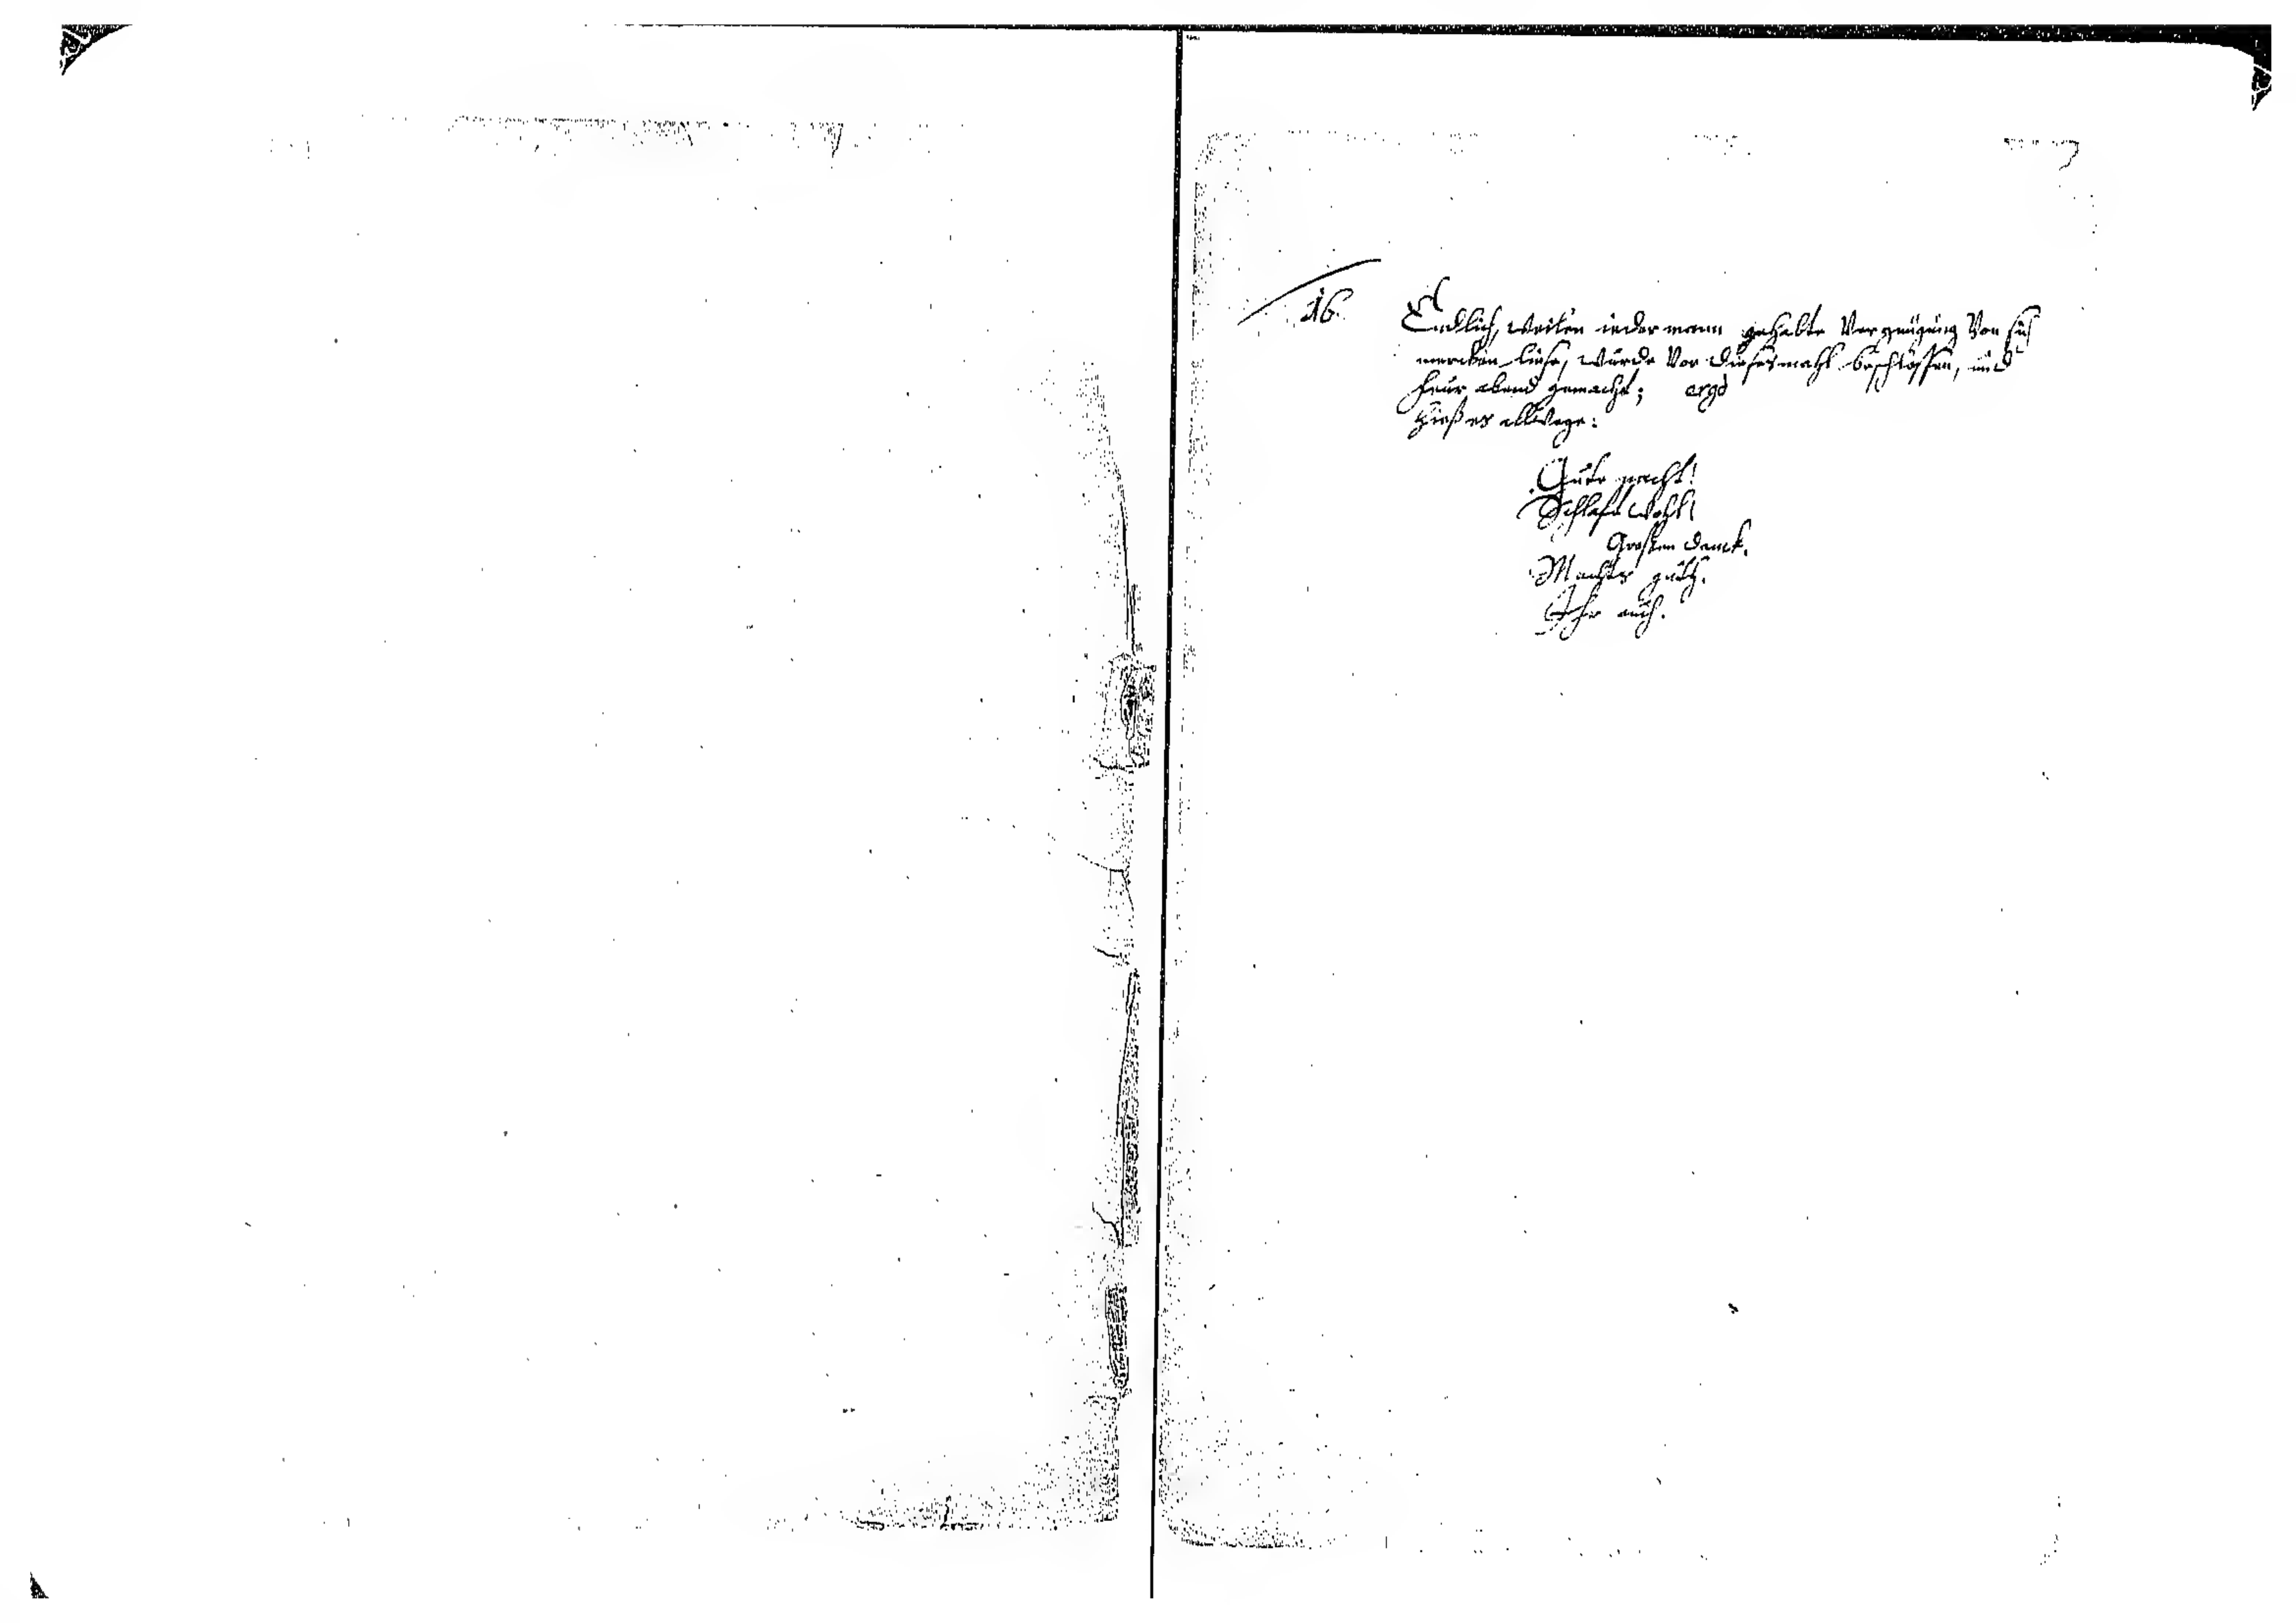 16.
Endlich, weilen iederman gehabte Vergnügung Von sich
mercken liese, wurde Vor diesesmahl beschlossen, und
feur abend gemacht; ergo
hieß es allwege:
Gute nacht!
Schlaft wohl!
Großen danck.
Machts guth.
Ihr auch.